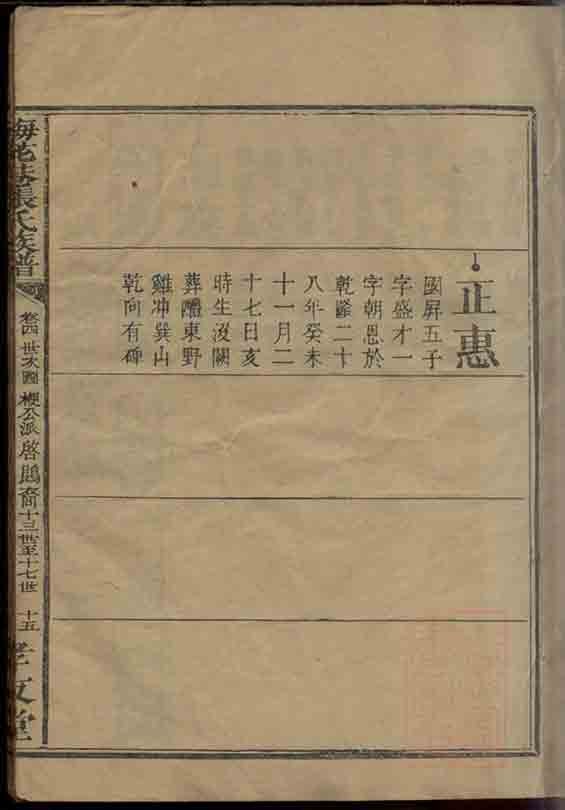 正惠
國屏五子
字盛才一
字朝恩於
乾隆二十
八年癸未
十一月二
十七日亥
時生沒闕
葬醴東野
雞冲巽山
乾向有碑
梅花巷張氏族譜
卷四 世次圖 梗公派 啓鵾裔 十三世至十七世 十五
孝友堂